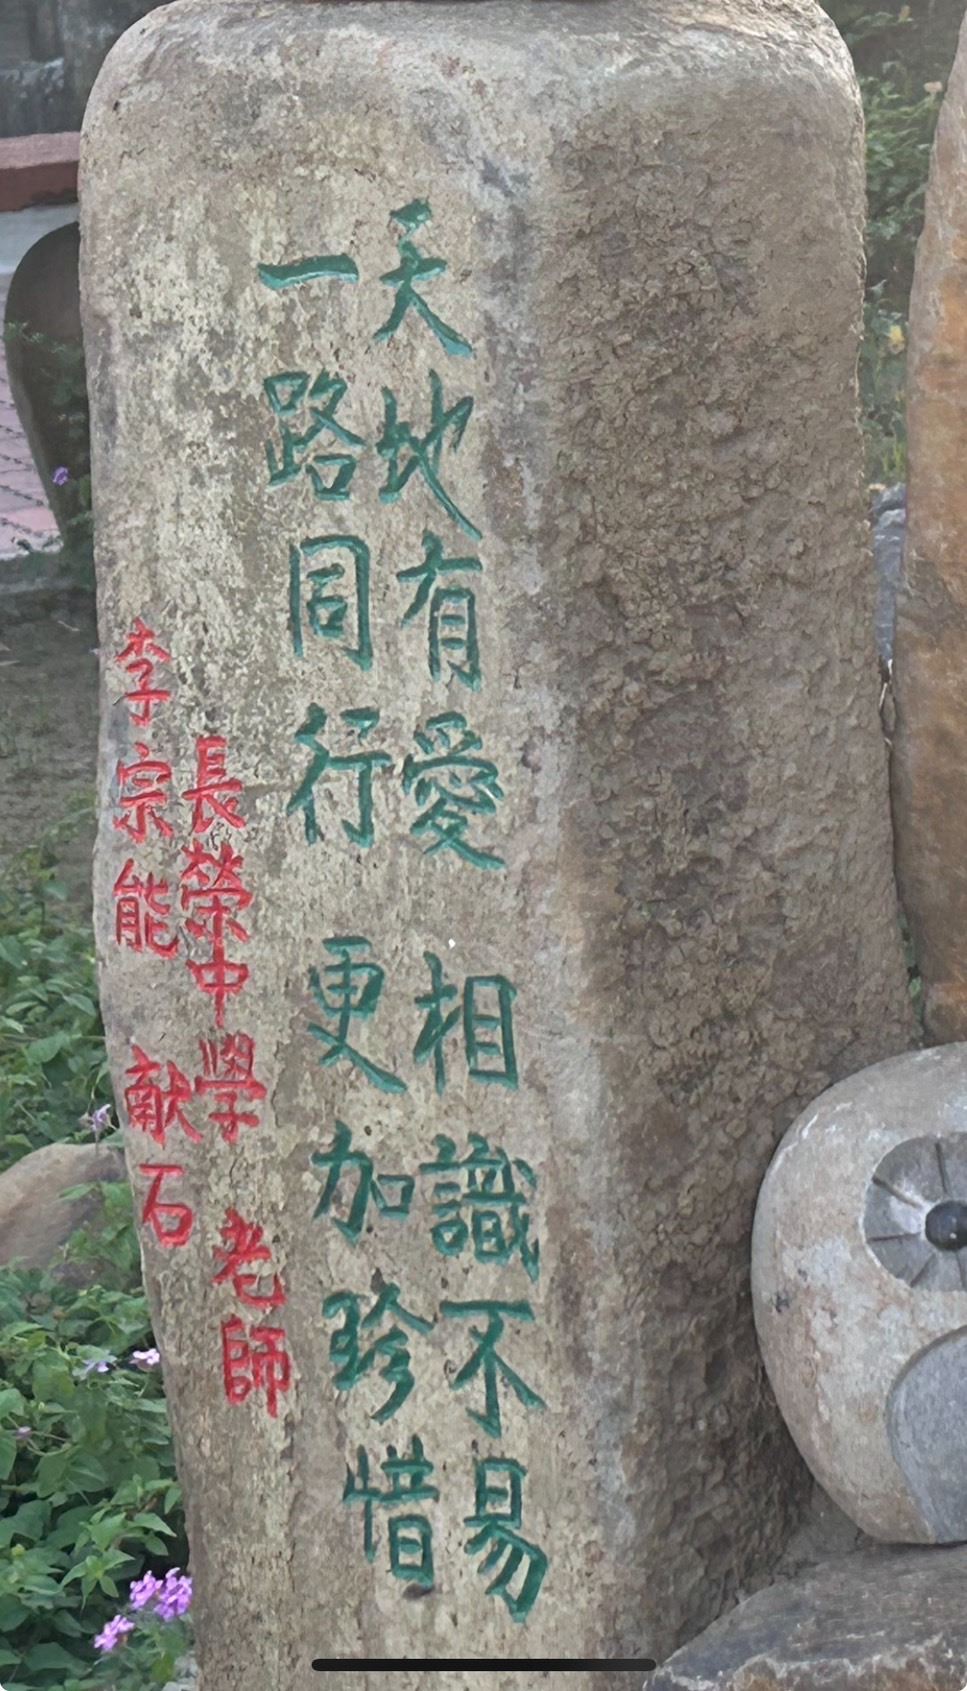 天地有愛 相識不易
一路同行 更加珍惜
長榮中學 老師
李宗能 献石